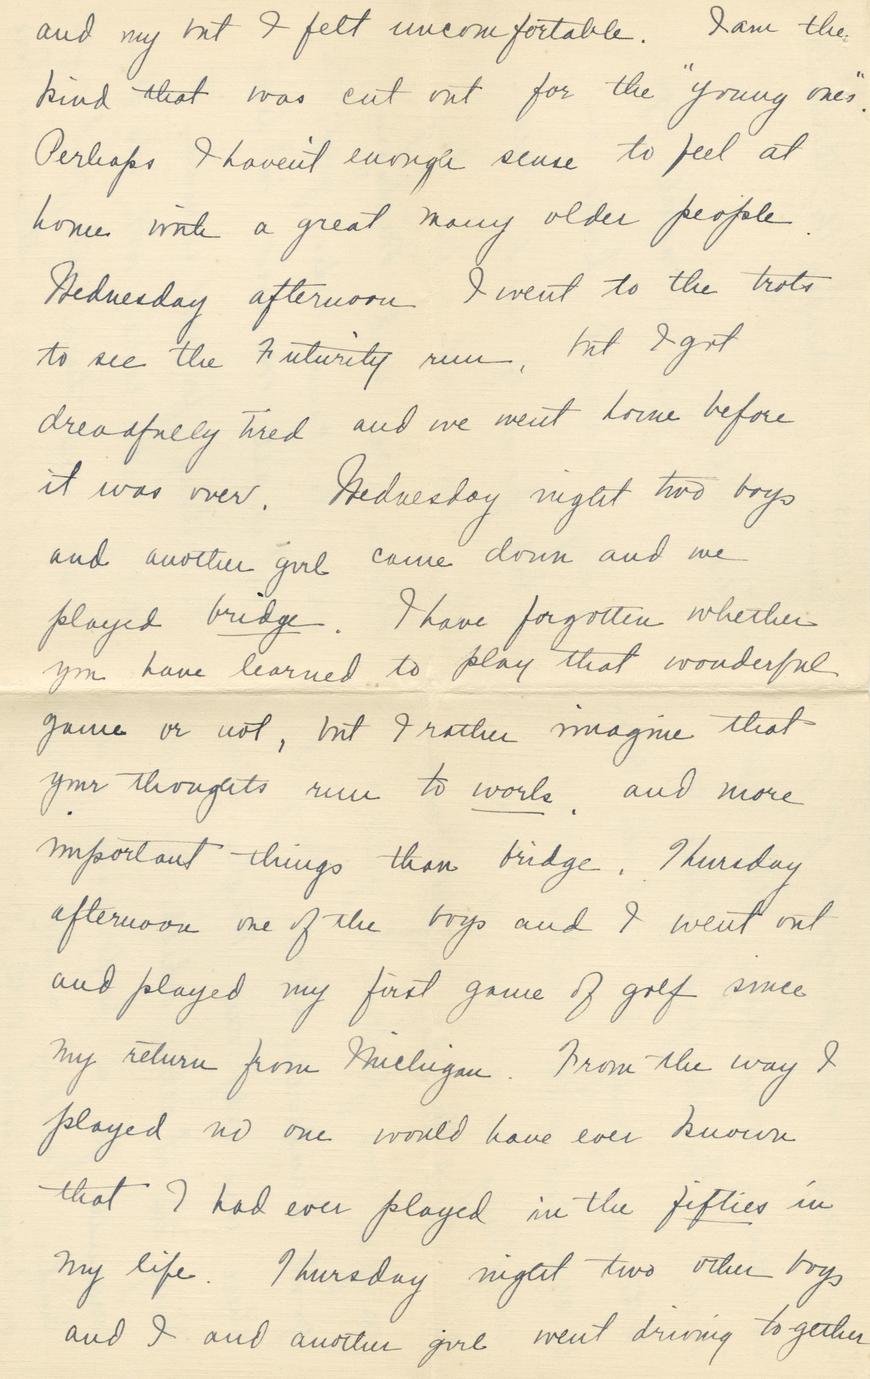 and my but I felt uncomfortable. I am the
kind that was cut out for the "young ones".
Perhaps I haven't enough sense to feel at
home with a great many older people.
Wednesday afternoon I went to the trots
to see the Futurity run, but I got
dreadfully tired and we went home before
it was over. Wednesday night two boys
and another girl came down and we
played bridge. I have forgotten whether
you have learned to play that wonderful
game or not, but I rather imagine that
your thoughts run to work, and more
important things than bridge. Thursday
afternoon one of the boys and I went out
and played my first game of golf since
my return from Michigan. From the way I
played no one would have ever known
that I had ever played in the fifties in
my life. Thursday night two other boys
and I and another girl went driving together